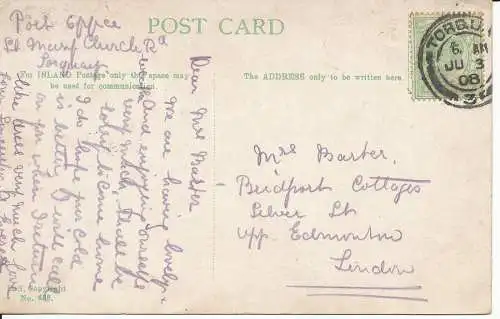 Post Office
St Mary Church Rd
Torquay
POST CARD
For INLAND Postage only this space may
be used for communication.
The ADDRESS only to be written here.
TORQUAY
6. AM
JU 3
08
Dear Mrs Barter
We are having lovely
weather and enjoying ourselves
very much. Shall be
sorry to come home
I do hope your cold
is better I will call
on you when I return
With love very much from
Mrs Barter,
Bridport Cottages
Silver St
Upp Edmonton
London
Copyright
No. 488.